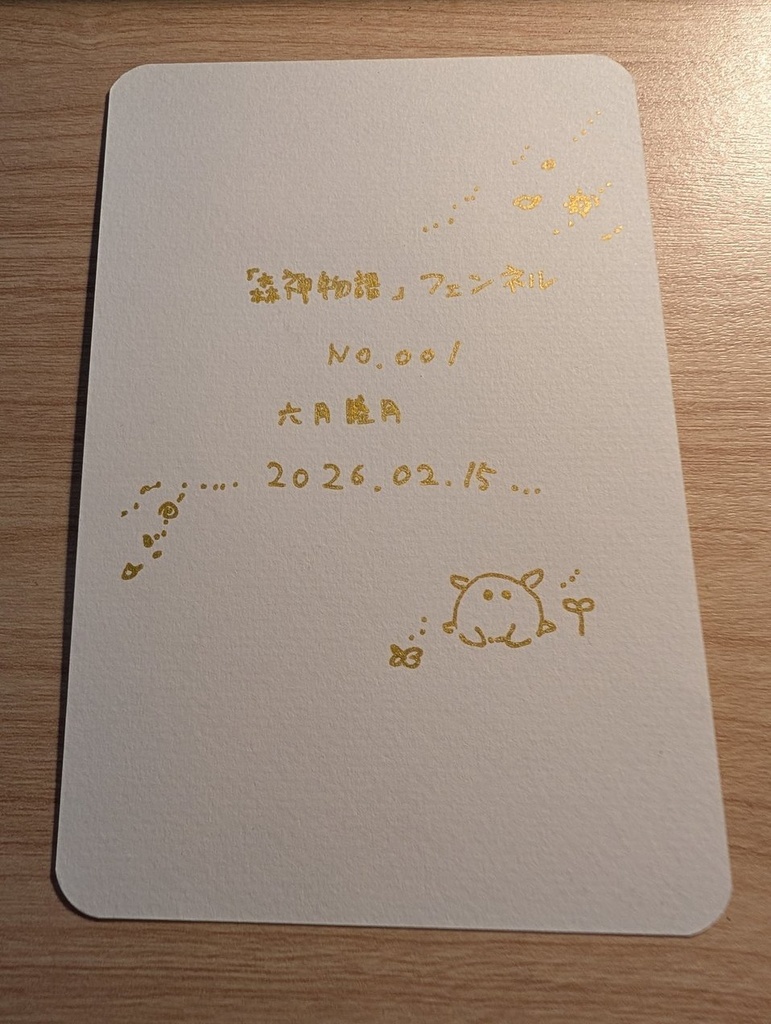 「森神物語」フェンネル
NO.001
六月陸月
2026.02.15...